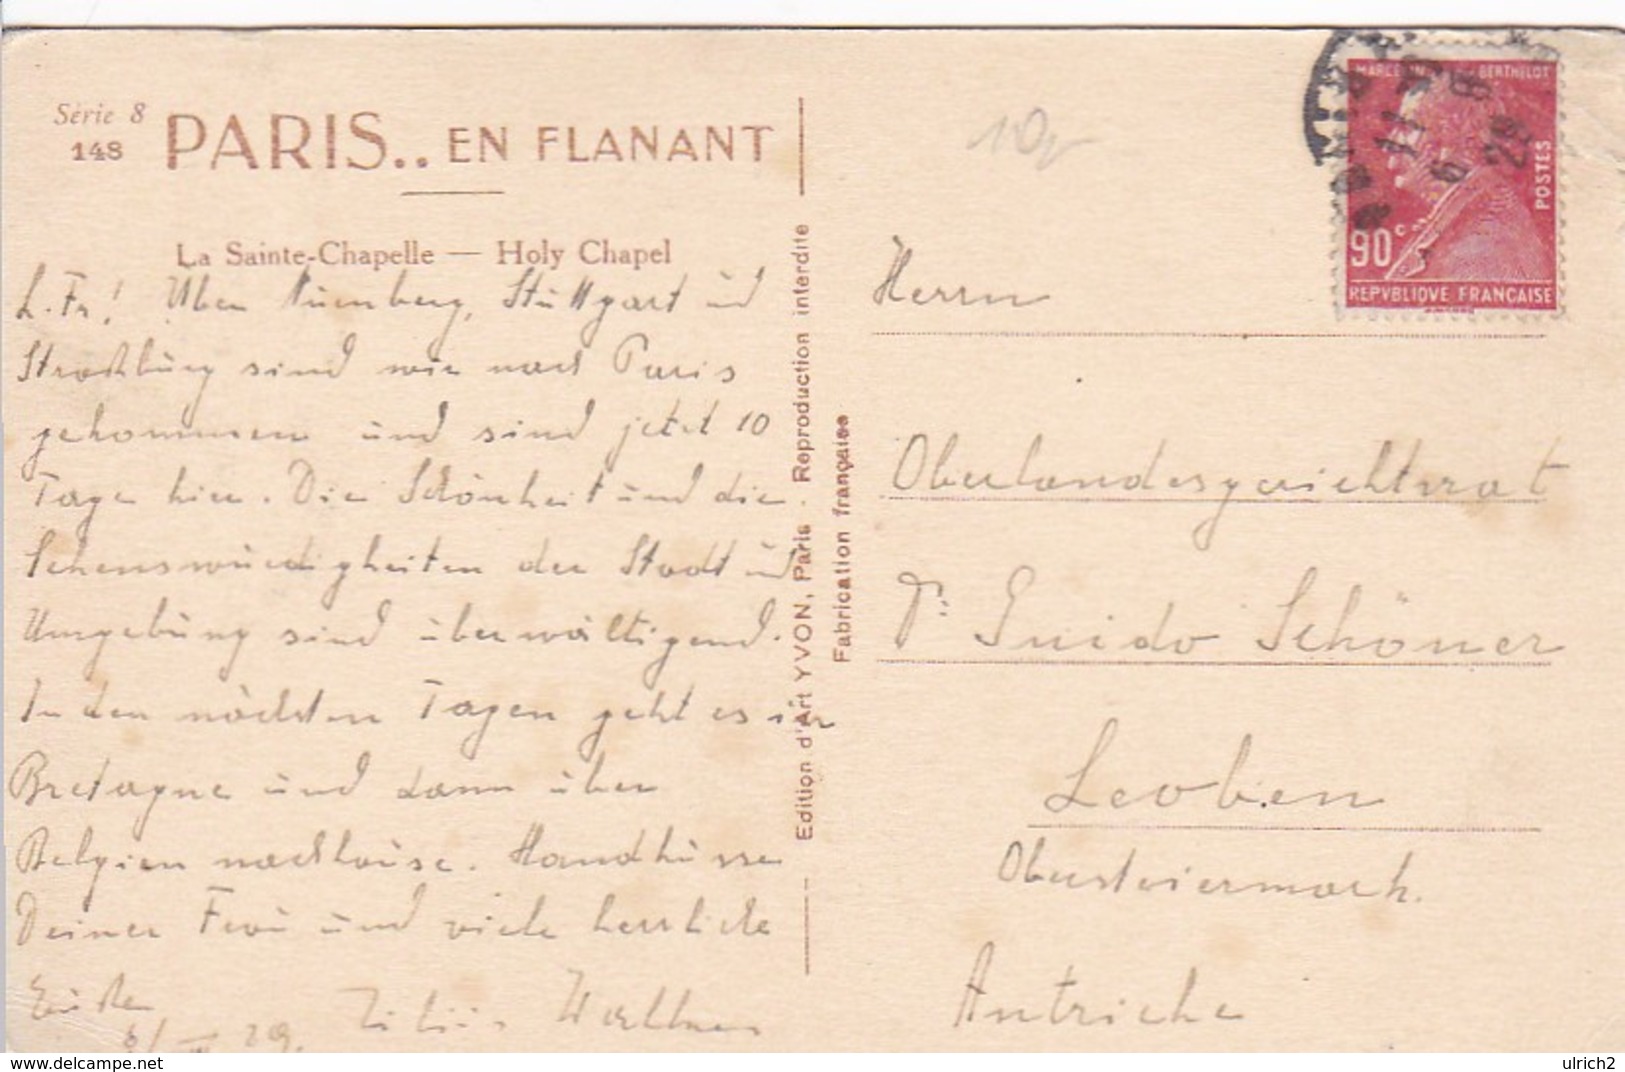 Série 8
148
PARIS.. EN FLANANT
La Sainte-Chapelle — Holy Chapel
L. Fr! Über Nürnberg, Stuttgart und
Straßburg sind wir nach Paris
gekommen und sind jetzt 10
Tage hier. Die Schönheit und die
Sehenswürdigkeiten der Stadt und
Umgebung sind überwältigend.
In den nächsten Tagen geht es in
Bretagne und dann über
Belgien nachhause. Handküsse
Deiner Frau und viele herzliche
29.
Edition d'Art YVON, Paris. Reproduction interdite
Fabrication française
10
MARCELIN BERTHELOT
POSTES
90c
REPVBLIQVE FRANÇAISE
11
6 8
29
Herrn
Oberlandesgerichtsrat
Dr Guido Schöner
Leoben
Obersteiermark.
Autriche
ulrich2